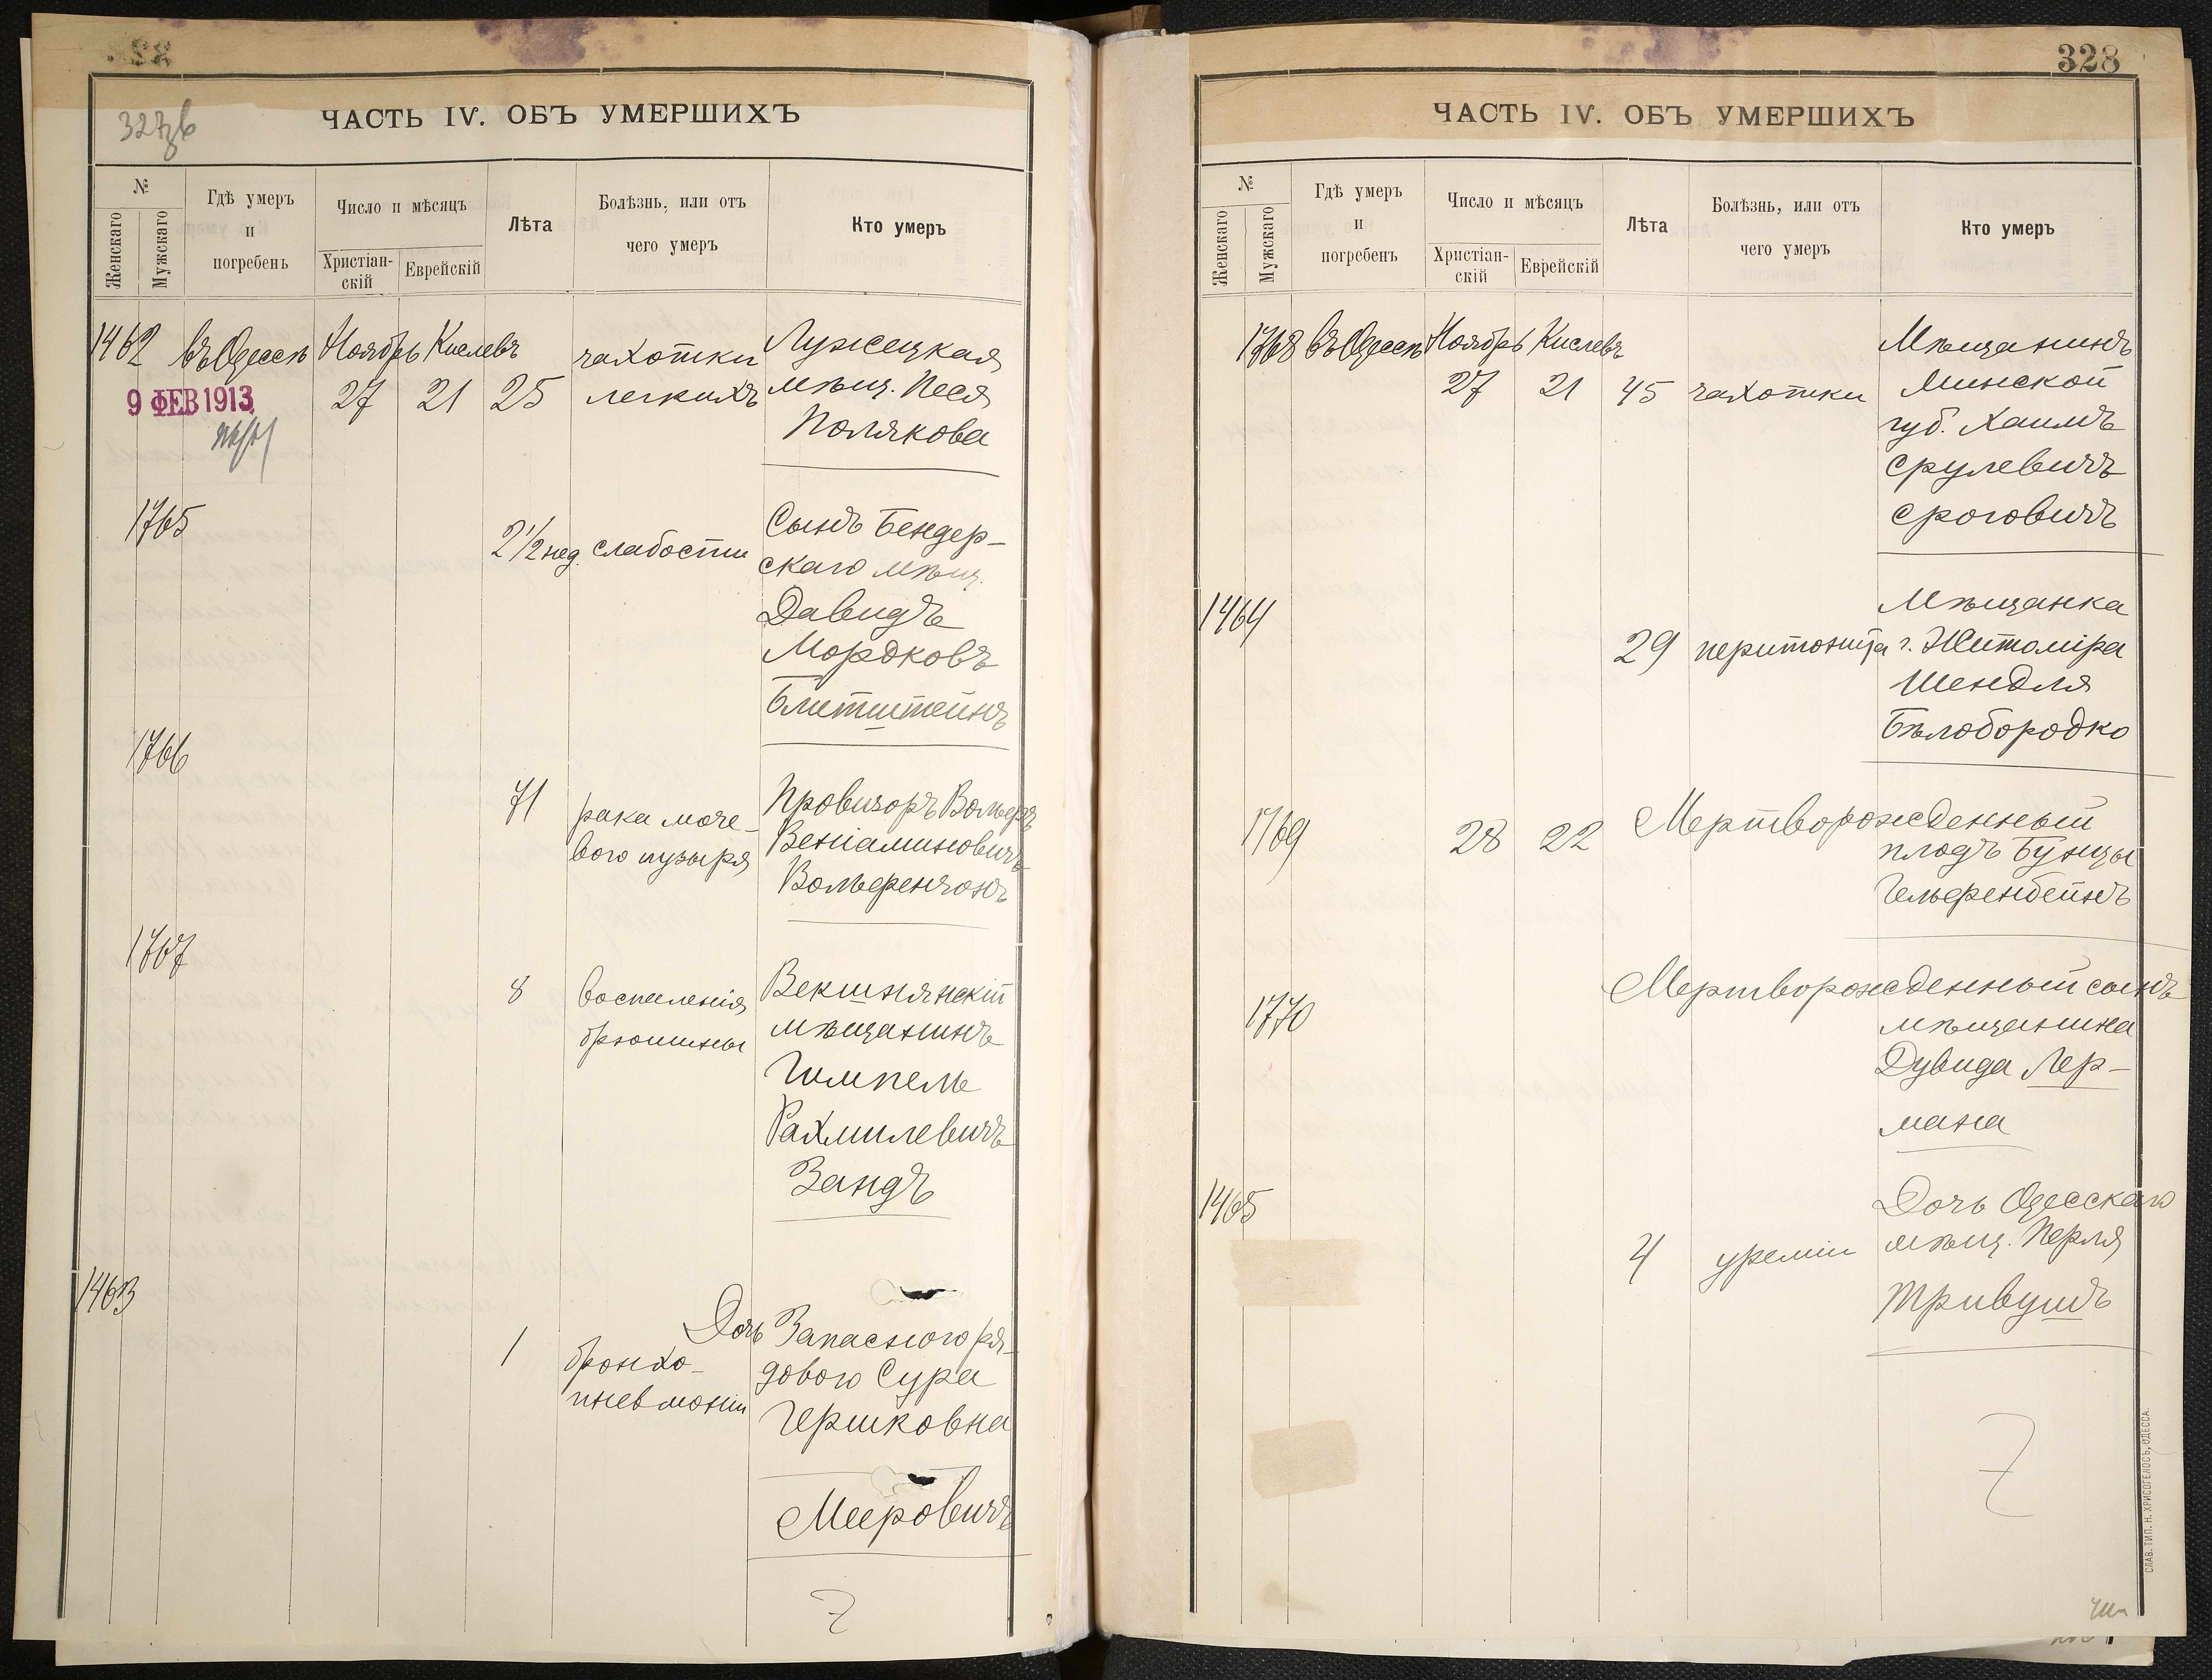 327об
ЧАСТЬ IV. ОБЪ УМЕРШИХЪ
№
Женскаго
Мужскаго
Гдѣ умеръ
и
погребенъ
Число и мѣсяцъ
Христіан-
скій
Еврейскій
Лѣта
Болѣзнь, или отъ
чего умеръ
Кто умеръ
1462 въ Одессѣ Ноябрь Кислевъ чахотки Лужецкая
9 ФЕВ 1913 27 21 25 легкихъ мѣщ. Песя
Полякова
1765 2 1/2 нед. слабости Сынъ Бендер-
скаго мѣщ.
Давидъ
Мордковъ
Блитштейнъ
1766 71 рака моче- Провизоръ Вольфъ
вого пузыря Веніаминовичъ
Вольфензонъ
1767 8 воспаленія Векшнянскій
брюшины мѣщанинъ
Гимпель
Рахмилевичъ
Зандъ
1463 1 Дочь Запасного ря-
бронхо- дового Сура
пневмоніи Гершковна
Мееровичъ
328
ЧАСТЬ IV. ОБЪ УМЕРШИХЪ
№
Женскаго
Мужскаго
Гдѣ умеръ
и
погребенъ
Число и мѣсяцъ
Христіан-
скій
Еврейскій
Лѣта
Болѣзнь, или отъ
чего умеръ
Кто умеръ
1768 въ Одессѣ Ноябрь Кислевъ Мѣщанинъ
27 21 45 чахотки Минской
губ. Хаимъ
Срулевичъ
Сроговичъ
1464 Мѣщанка
29 перитонита г. Житоміра
Шендля
Бѣлобородко
1769 28 22 Мертворожденный
плодъ Бунцы
Гельфенбейнъ
1770 Мертворожденный сынъ
мѣщанина
Дувида Лер-
мана
1465 Дочь Одесскаго
4 уреміи мѣщ. Перля
Тривушъ
СЛАВ. ТИП. Н. ХРИСОГЕЛОСЪ, ОДЕССА.